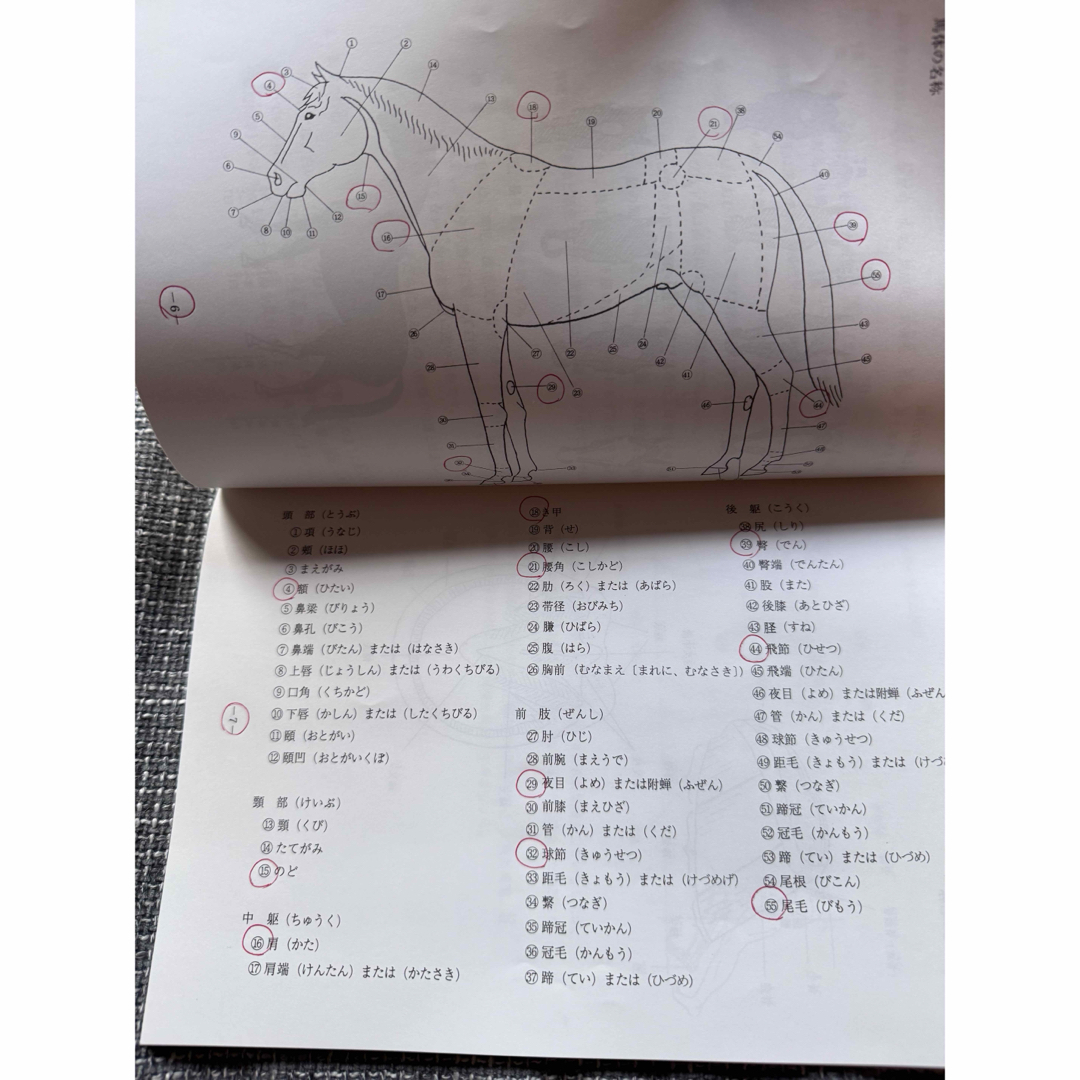 馬体の名称
① ② ③ ④ ⑤ ⑥ ⑦ ⑧ ⑨ ⑩ ⑪ ⑫ ⑬ ⑭ ⑮ ⑯ ⑰ ⑱ ⑲ ⑳ ㉑ ㊳ 54 ㊵ ㊴ 55 ㊸ ㊺ ㊹ ㊼ ㊻ ㊶ ㊷ ㉔ ㉕ ㉒ ㉓ ㉗ ㉙ ㉖ ㉘ ㉚ ㉛
—6—
頭 部（とうぶ）
①項（うなじ）
②頬（ほほ）
③まえがみ
④額（ひたい）
⑤鼻梁（びりょう）
⑥鼻孔（びこう）
⑦鼻端（びたん）または（はなさき）
⑧上唇（じょうしん）または（うわくちびる）
⑨口角（くちかど）
⑩下唇（かしん）または（したくちびる）
⑪頤（おとがい）
⑫頤凹（おとがいくぼ）
頸 部（けいぶ）
⑬頸（くび）
⑭たてがみ
⑮のど
中 躯（ちゅうく）
⑯肩（かた）
⑰肩端（けんたん）または（かたさき）
—7—
⑱き甲
⑲背（せ）
⑳腰（こし）
㉑腰角（こしかど）
㉒肋（ろく）または（あばら）
㉓帯径（おびみち）
㉔膁（ひばら）
㉕腹（はら）
㉖胸前（むなまえ〔まれに、むなさき〕）
前 肢（ぜんし）
㉗肘（ひじ）
㉘前腕（まえうで）
㉙夜目（よめ）または附蝉（ふぜん）
㉚前膝（まえひざ）
㉛管（かん）または（くだ）
㉜球節（きゅうせつ）
㉝距毛（きょもう）または（けづめげ）
㉞繋（つなぎ）
㉟蹄冠（ていかん）
㊱冠毛（かんもう）
㊲蹄（てい）または（ひづめ）
後 躯（こうく）
㊳尻（しり）
㊴臀（でん）
㊵臀端（でんたん）
㊶股（また）
㊷後膝（あとひざ）
㊸脛（すね）
㊹飛節（ひせつ）
㊺飛端（ひたん）
㊻夜目（よめ）または附蝉（ふぜん
㊼管（かん）または（くだ）
㊽球節（きゅうせつ）
㊾距毛（きょもう）または（けづ
㊿繋（つなぎ）
51蹄冠（ていかん）
52冠毛（かんもう）
53蹄（てい）または（ひづめ）
54尾根（びこん）
55尾毛（びもう）